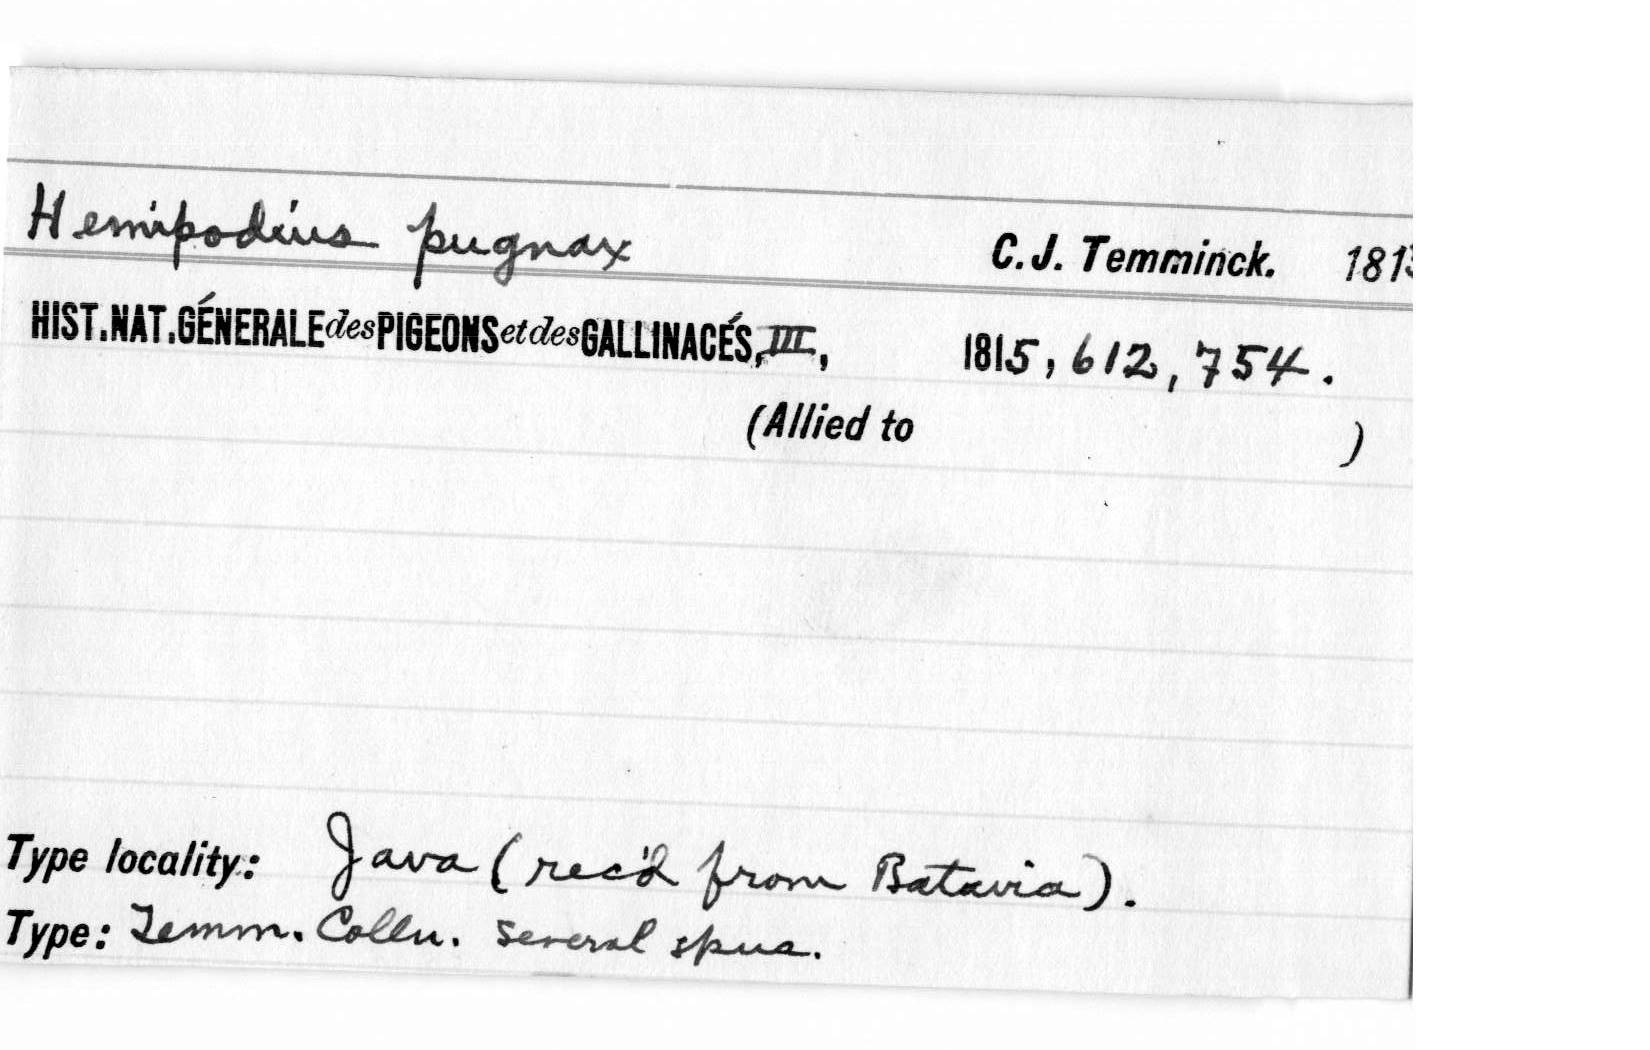 Hemipodius pugnax C.J. Temminck. 181
HIST.NAT.GÉNERALE des PIGEONS et des GALLINACÉS, III, 1815, 612, 754.
(Allied to )
Type locality: Java (rec'd from Batavia).
Type: Temm. Colln. several spns.